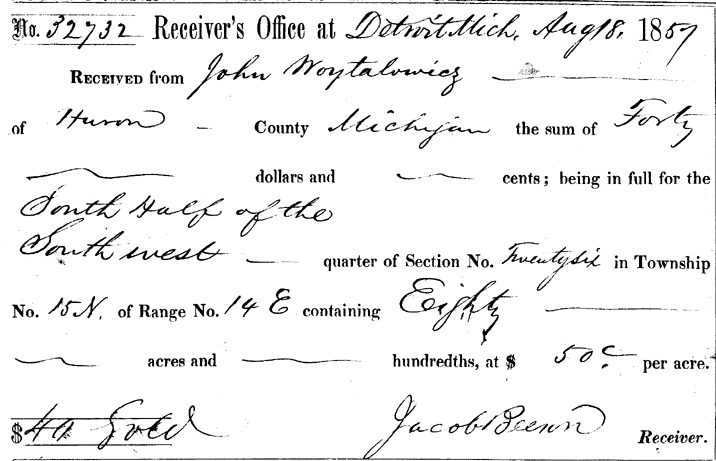 No. 32732 Receiver's Office at Detroit Mich. Aug 18. 1857
RECEIVED from John Woytalowicz
of Huron County Michigan the sum of Forty
dollars and cents; being in full for the
South Half of the
South west quarter of Section No. Twenty six in Township
No. 15 N. of Range No. 14 E containing Eighty
acres and hundredths, at $ 50 c per acre.
$40 Gold Jacob Beeson Receiver.